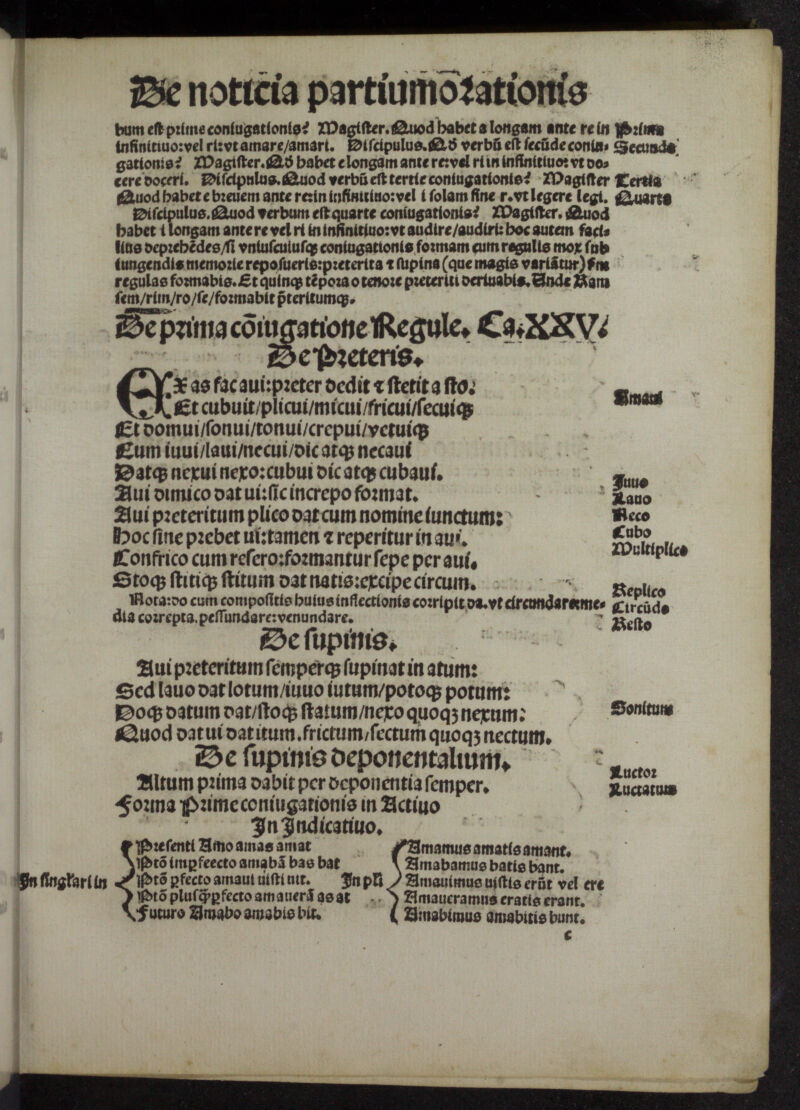 De noticia partium orationis
bum est prime coniugationis? Magister. Quod habet a longam ante re in Prima
infinitiuo: vel ri: vt amare/amari. Discipulus. Qđ verbū est secūde coniu- Secunda
gationis? Magister. Qđ habet e longam ante re: vel ri in infinitiuo: vt do-
cere doceri. Discipulus. Quod verbū est tertie coniugationis? Magister Tertia
Quod habet e breuem ante re: in infinitiuo: vel i solam sine r. vt legere legi. Quarta
Discipulus. Quod verbum est quarte coniugationis? Magister. Quod
habet i longam ante re vel ri in infinitiuo: vt audire/audiri: hoc autem faci-
lius deprehēdes/si vniuscuiusqꝫ coniugationis formam cum regulis mox sub
iungendis memorie reposueris: preterita ⁊ supina (que magis variātur) ꝑ has
regulas formabis. Et quinqꝫ tēpora o tenore preteriti deriuabis. Unde Ram
sem/rim/ro/se/formabit p̄teritumqꝫ.
De prima cōiugatione Regule. Ca. XXV.
De Preteris.
EX as fac aui: preter dedit ⁊ stetit a sto.
Et cubuit/plicui/micui/fricui/secuiqꝫ Amaui
Et domui/sonui/tonui/crepui/vetuiqꝫ
Cum iuui/laui/necui/dic atqꝫ necaui
Datqꝫ nexui nexo: cubui dic atqꝫ cubaui.
Aui dimico dat ui: sic increpo format. Iuuo
Lauo
Aui preteritum plico dat cum nomine iunctum: Neco
Hoc sine prebet ui: tamen ⁊ reperitur in aui. Cubo
Confrico cum refero: formantur sepe per aui. Multiplico
Stoqꝫ stitiqꝫ stitum dat natis: excipe circum.
Replico
Nota: do cum compositis huius inflectionis corripit da. vt circundare: me- Circūdo
dia correpta. pessundare: venundare. Resto
De supinis.
Aui preteritum semperqꝫ supinat in atum:
Sed lauo dat lotum/iuuo iutum/potoqꝫ potum:
Doqꝫ datum dat/stoqꝫ statum/nexo quoqꝫ nexum: Sonitum
Quod dat ui dat itum. frictum/sectum quoqꝫ nectum.
De supinis deponentalium.
Luctor
Altum prima dabit per deponentia semper. Luctatum
Forma Prime coniugationis in Actiuo
In Indicatiuo.
Presenti Amo amas amat Amamus amatis amant.
Ptō impfeecto amabā bas bat Amabamus batis bant.
In singlari in Ptō ꝑfecto amaui uisti uit. In pli Amauimus uistis erūt vel ere
Ptō plusqꝫꝑfecto amauerā as at Amaueramus eratis erant.
Futuro Amabo amabis bit. Amabimus amabitis bunt.
c